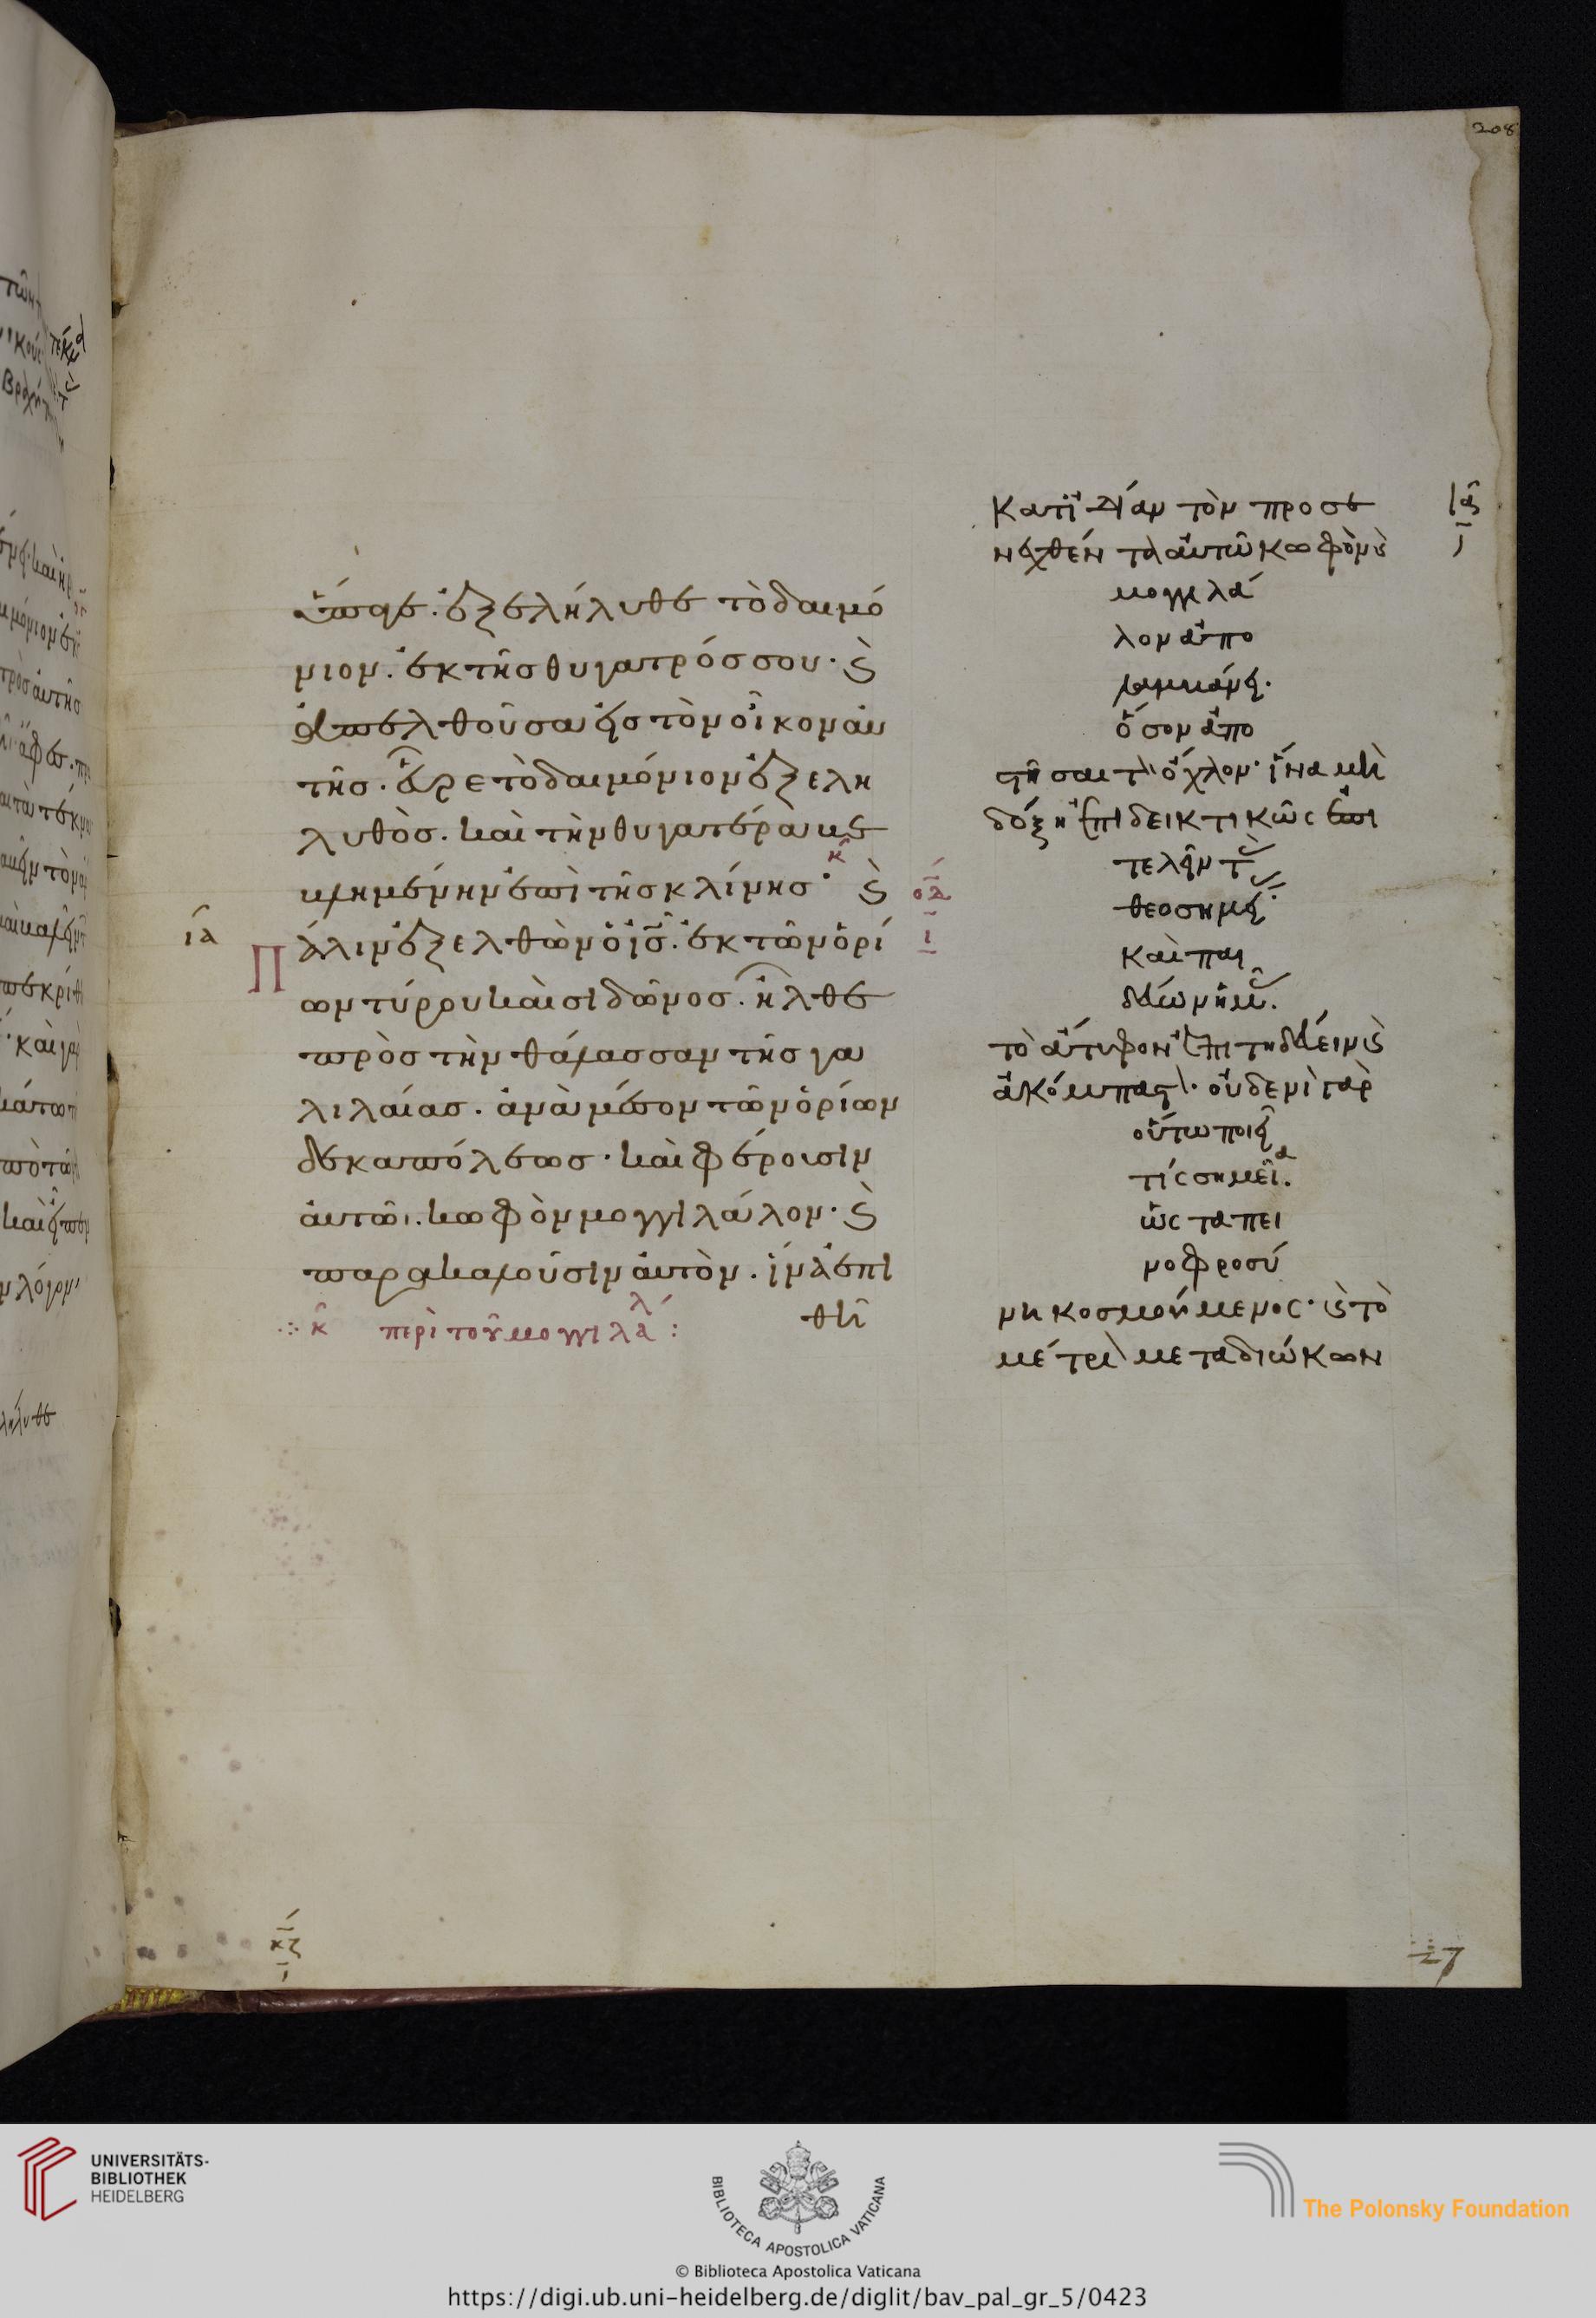 208
ὕπαγε. ἐξελήλυθε τὸ δαιμό
νιον. ἐκ τῆς θυγατρός σου. ϗ
ἀπελθοῦσα εἰς τὸν οἶκον αὐ
τῆς. εὗρε τὸ δαιμόνιον ἐξελη
λυθὸς. καὶ τὴν θυγατέρα κε
κλημένην ἐπὶ τῆς κλίνης. ϗ
ια
οα
ι
Πάλιν ἐξελθὼν ὁ ις. ἐκ τῶν ὁρί
ων τύρου καὶ σιδῶνος. ἦλθε
πρὸς τὴν θάλασσαν τῆς γα
λιλαίας. ἀνὰ μέσον τῶν ὁρίων
δεκαπόλεως. καὶ φέρουσιν
αὐτῶι. κωφὸν μογγιλάλον. ϗ
παρακαλοῦσιν αὐτὸν. ἵνα ἐπι
θῆι
κ περὶ τοῦ μογγιλάλ :
Κατϊδίαν τὸν προσε
νεχθέντα αὐτῶ κωφὸν ϗ
μογγιλά
λον ἀπο
λαμβάνει.
ὅσον ἀπο
στῆσαι τ ὄχλον. ἵνα μὴ
δόξη ἐπιδεικτικῶς ἐπι
τελεῖν τ
θεοσημεί
καὶ παι
δεύων ἡμ.
τὸ ἄτυφον ἐπιτηδεύειν ϗ
ἀκόμπαστ. οὐδενὶ γὰρ
οὕτω ποιεῖ
τίς σημεῖα.
ὡς ταπει
νοφροσύ
νη κοσμούμενος. ϗ τὸ
μέτρι μεταδιώκων
κζ
27
UNIVERSITÄTS-
BIBLIOTHEK
HEIDELBERG
BIBLIOTECA APOSTOLICA VATICANA
The Polonsky Foundation
© Biblioteca Apostolica Vaticana
https://digi.ub.uni-heidelberg.de/diglit/bav_pal_gr_5/0423